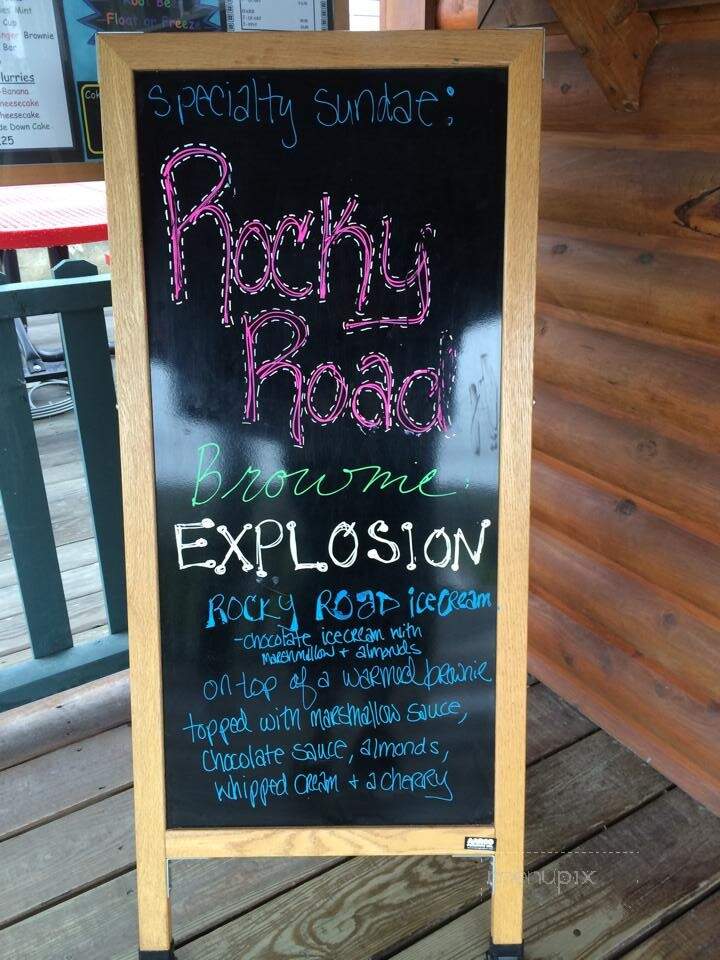 Root Beer
Float or Freeze
Mint
Cup
Brownie
Bar
lurries
-Banana
heesecake
heesecake
de Down Cake
.25
specialty sundae:
Rocky
Road
Brownie
EXPLOSION
ROCKY ROAD ice cream
-chocolate ice cream with
marshmallow + almonds
on top of a warmed brownie
topped with marshmallow sauce,
chocolate sauce, almonds,
whipped cream + a cherry
menupix